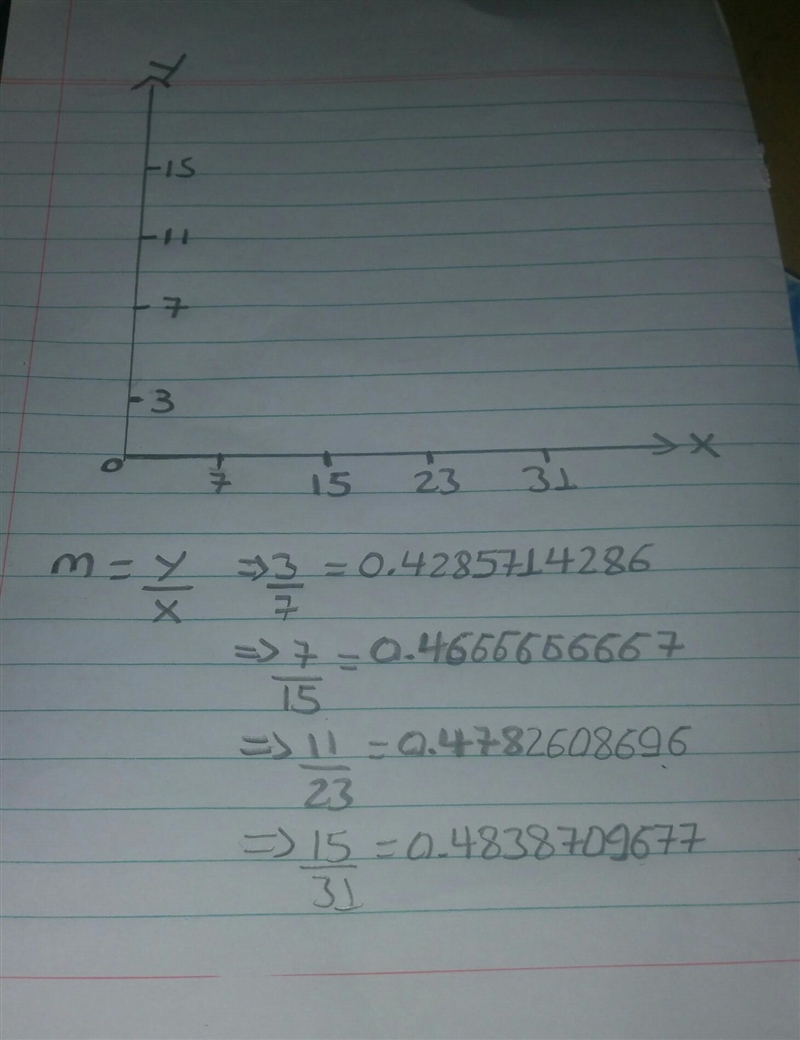 Y
15
11
7
3
0
7 15 23 31 X
m = y/x => 3/7 = 0.4285714286
=> 7/15 = 0.4666666667
=> 11/23 = 0.4782608696
=> 15/31 = 0.4838709677